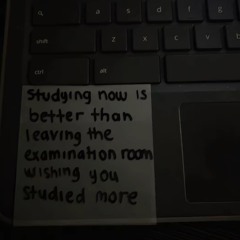 a s d f g
shift z x c v b
ctrl alt
Studying now is
better than
leaving the
examination room
wishing you
studied more